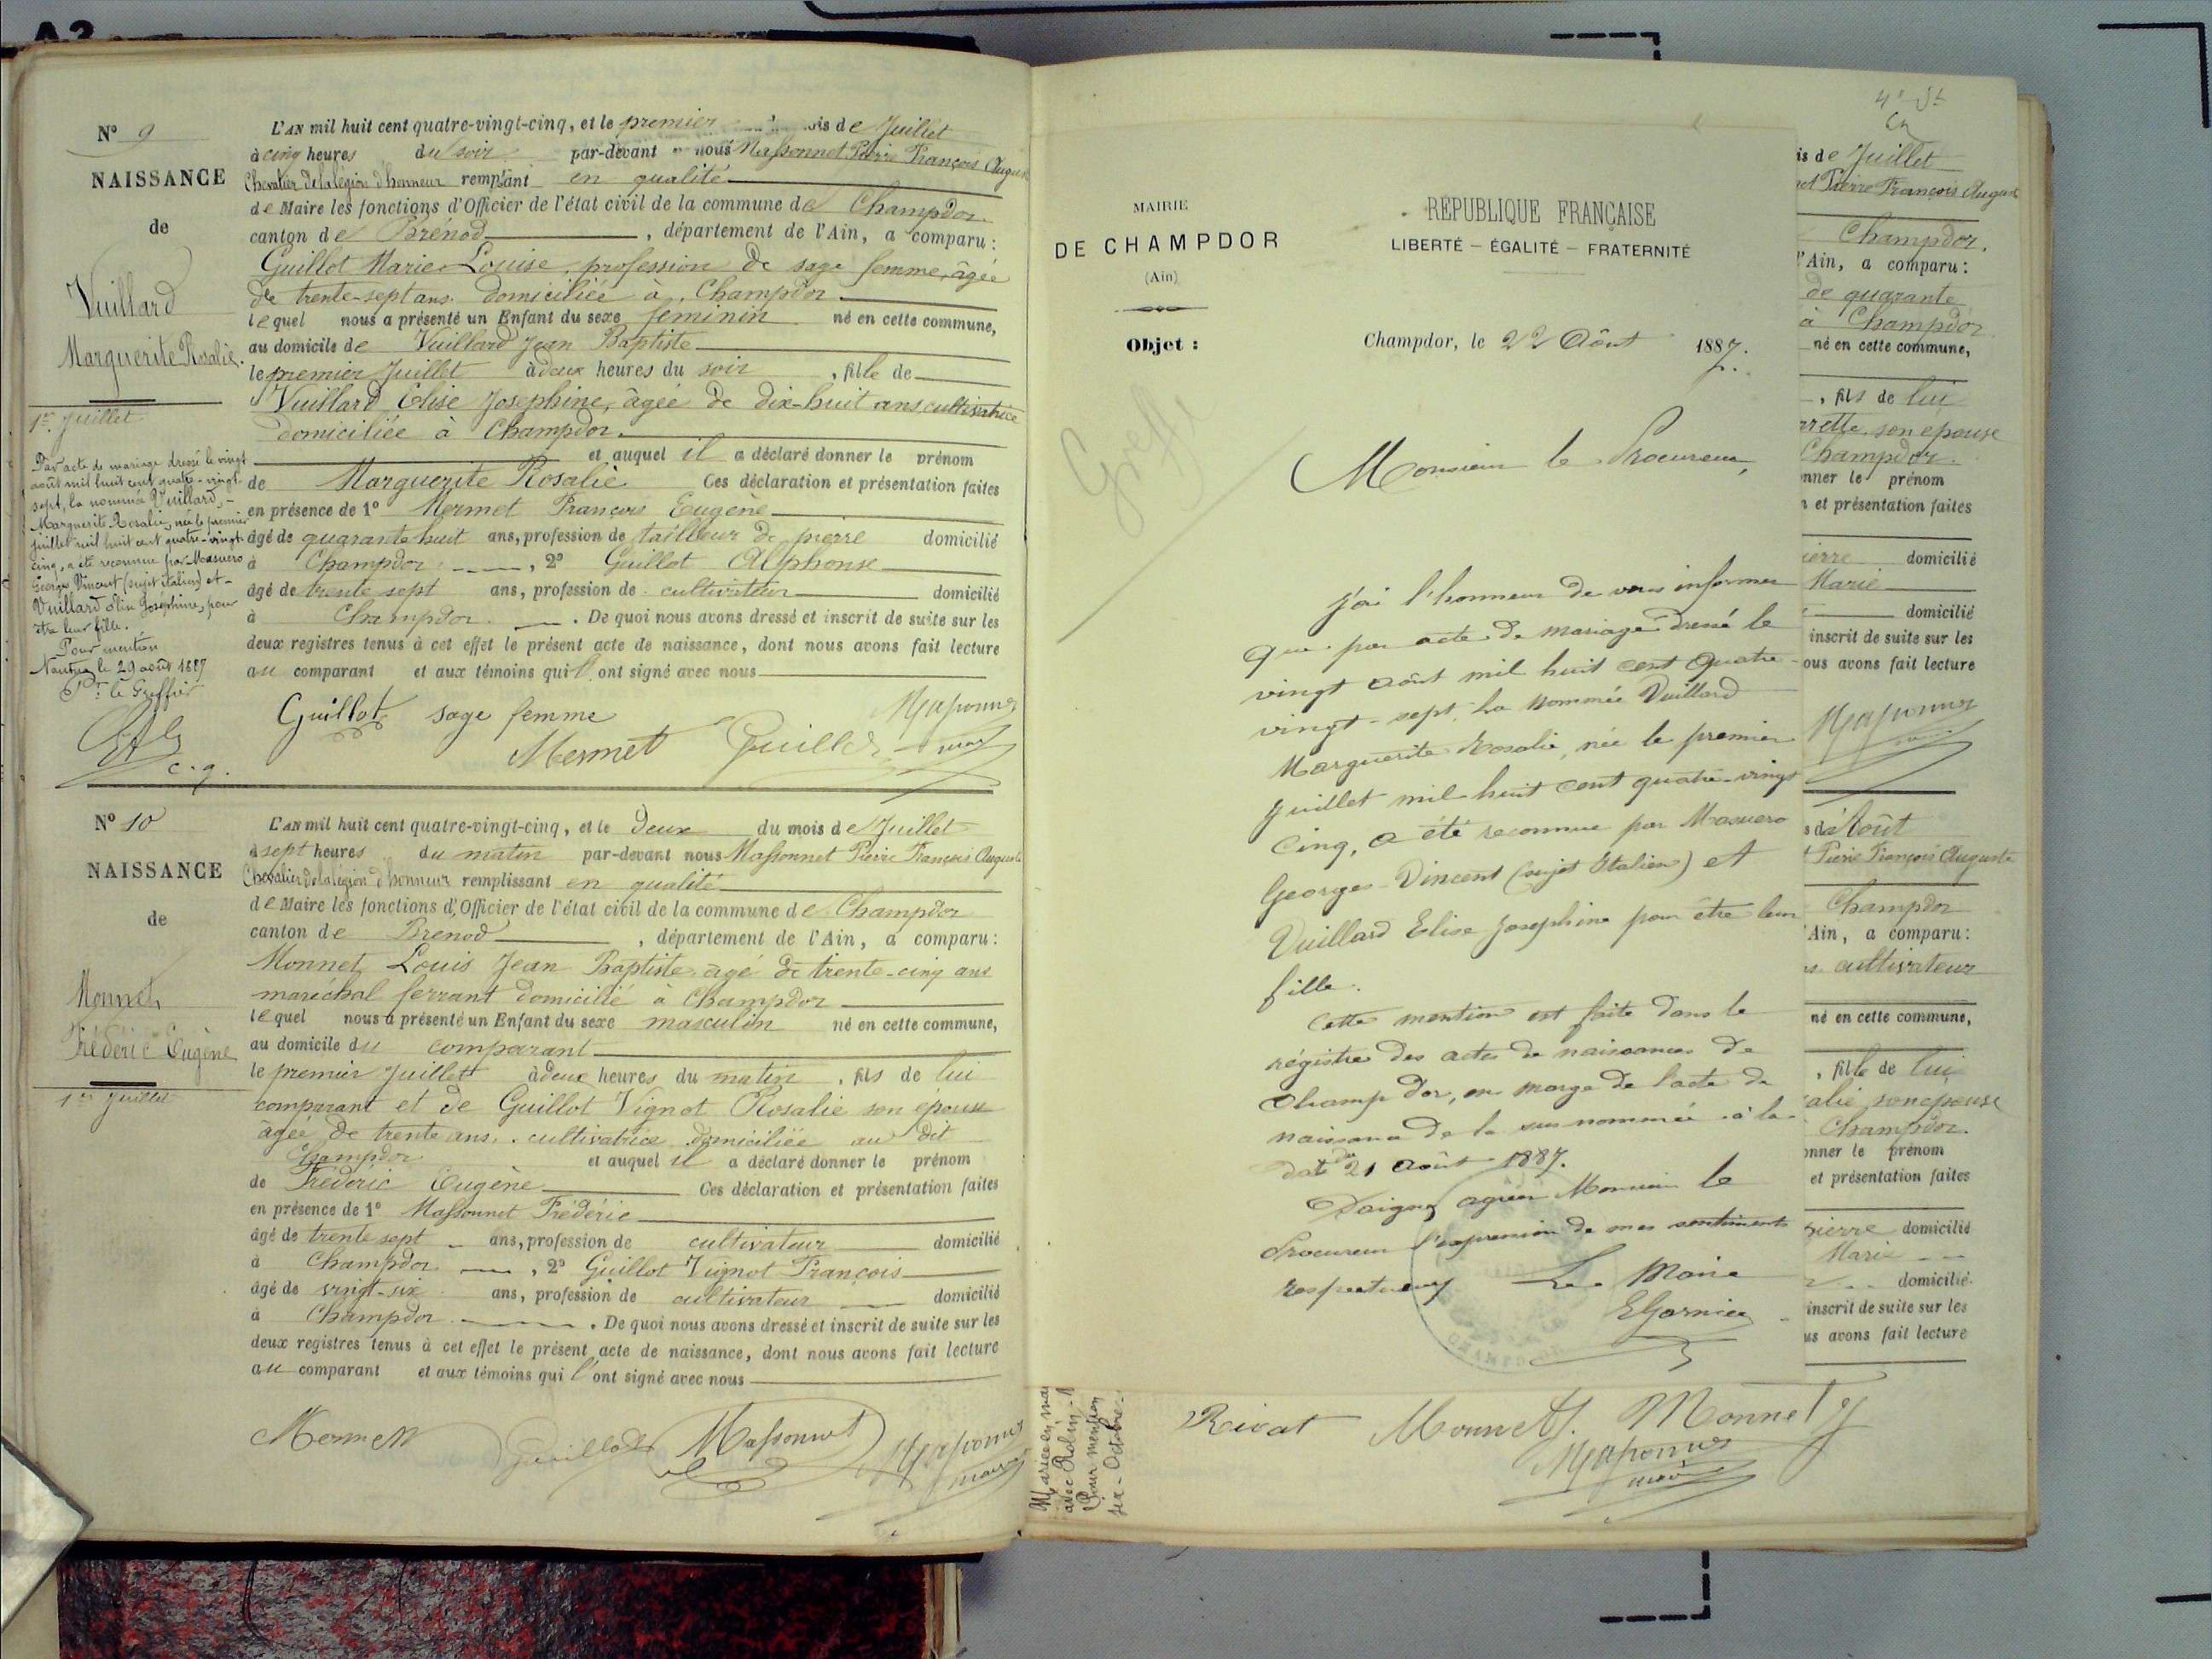 A3
N° 9
NAISSANCE
de
Vuillard
Marguerite Rosalie.
1er Juillet
Par acte de mariage dressé le vingt
août mil huit cent quatre-vingt
sept, la nommée Vuillard,
Marguerite Rosalie, née le premier
juillet mil huit cent quatre-vingt
cinq, a été reconnue par Masuero
Georges Vincent (sujet italien) et
Vuillard Elise Joséphine, pour
être leur fille.
Pour mention
Nantua le 29 août 1887
Pr le Greffier
c. g.
L'AN mil huit cent quatre-vingt-cinq, et le premier is de Juillet
à cinq heures du soir par-devant nous Massonnet Pierre François August
Chevalier de la légion d'honneur remplant en qualité
de Maire les fonctions d'Officier de l'état civil de la commune de Champdor
canton de Brénod, département de l'Ain, a comparu :
Guillot Marie Louise, profession de sage femme, âgée
de trente-sept ans domiciliée à Champdor
lequel nous a présenté un Enfant du sexe féminin né en cette commune,
au domicile de Vuillard Jean Baptiste
le premier Juillet à deux heures du soir, fille de
Vuillard Elise Josephine, âgée de dix-huit ans cultivatrice
domiciliée à Champdor.
et auquel il a déclaré donner le prénom
de Marguerite Rosalie Ces déclaration et présentation faites
en présence de 1° Mermet François Eugène
âgé de quarante huit ans, profession de tailleur de pierre domicilié
à Champdor, 2° Guillot Alphonse
âgé de trente sept ans, profession de cultivateur domicilié
à Champdor. De quoi nous avons dressé et inscrit de suite sur les
deux registres tenus à cet effet le présent acte de naissance, dont nous avons fait lecture
au comparant et aux témoins qui l'ont signé avec nous
Guillot sage femme
Mermet Guillot
N° 10
NAISSANCE
de
Monnet
Frédéric Eugène
1er Juillet
L'AN mil huit cent quatre-vingt-cinq, et le Deux du mois de Juillet
à sept heures du matin par-devant nous Massonnet Pierre François August
Chevalier de la légion d'honneur remplissant en qualité
de Maire les fonctions d'Officier de l'état civil de la commune de Champdor
canton de Brenod, département de l'Ain, a comparu :
Monnet Louis Jean Baptiste âgé de trente-cinq ans
maréchal ferrant domicilié à Champdor
lequel nous a présenté un Enfant du sexe masculin né en cette commune,
au domicile du comparant
le premier Juillet à deux heures du matin, fils de lui
comparant et de Guillot Vignot Rosalie son epouse
âgée de trente ans, cultivatrice domiciliée au dit
Champdor et auquel il a déclaré donner le prénom
de Frédéric Eugène Ces déclaration et présentation faites
en présence de 1° Massonnet Frédéric
âgé de trente sept ans, profession de cultivateur domicilié
à Champdor, 2° Guillot Vignot François
âgé de vingt-six ans, profession de cultivateur domicilié
à Champdor. De quoi nous avons dressé et inscrit de suite sur les
deux registres tenus à cet effet le présent acte de naissance, dont nous avons fait lecture
au comparant et aux témoins qui l'ont signé avec nous
Guillot Massonnet
MAIRIE
DE CHAMPDOR
(Ain)
Objet :
Greffe
RÉPUBLIQUE FRANÇAISE
LIBERTÉ – ÉGALITÉ – FRATERNITÉ
Champdor, le 22 Août 1887.
Monsieur le Procureur,
J'ai l'honneur de vous informer
que par acte de mariage dressé le
vingt août mil huit cent quatre-
vingt-sept, la nommée Vuillard
Marguerite Rosalie, née le premier
Juillet mil huit cent quatre-vingt
cinq, a été reconnue par Masuero
Georges Vincent (sujet Italien) et
Vuillard Elise Josephine pour être leur
fille.
Cette mention est faite dans le
régistre des actes de naissances de
Champdor, en marge de l'acte de
naissance de la sus nommée à la
date du 21 Août 1887.
Daignez agréer Monsieur le
Procureur l'expression de mes sentiments
respectueux Le Maire
EGarnier
is de Juillet
et Pierre François August
Champdor.
l'Ain, a comparu :
de quarante
à Champdor
né en cette commune,
, fils de lui
rette son epouse
Champdor.
onner le prénom
et présentation faites
ierre domicilié
Marie
domicilié
inscrit de suite sur les
ous avons fait lecture
s d'Août
Pierre François Auguste
Champdor
Ain, a comparu :
cultivateur
né en cette commune,
, fille de lui
alie son epouse
Champdor.
onner le prénom
et présentation faites
pierre domicilié
Marie
domicilié
inscrit de suite sur les
us avons fait lecture
Mariée en mai
avec Robin
Pour mention
six-Octobre
Rivat Monnet J. Monnet